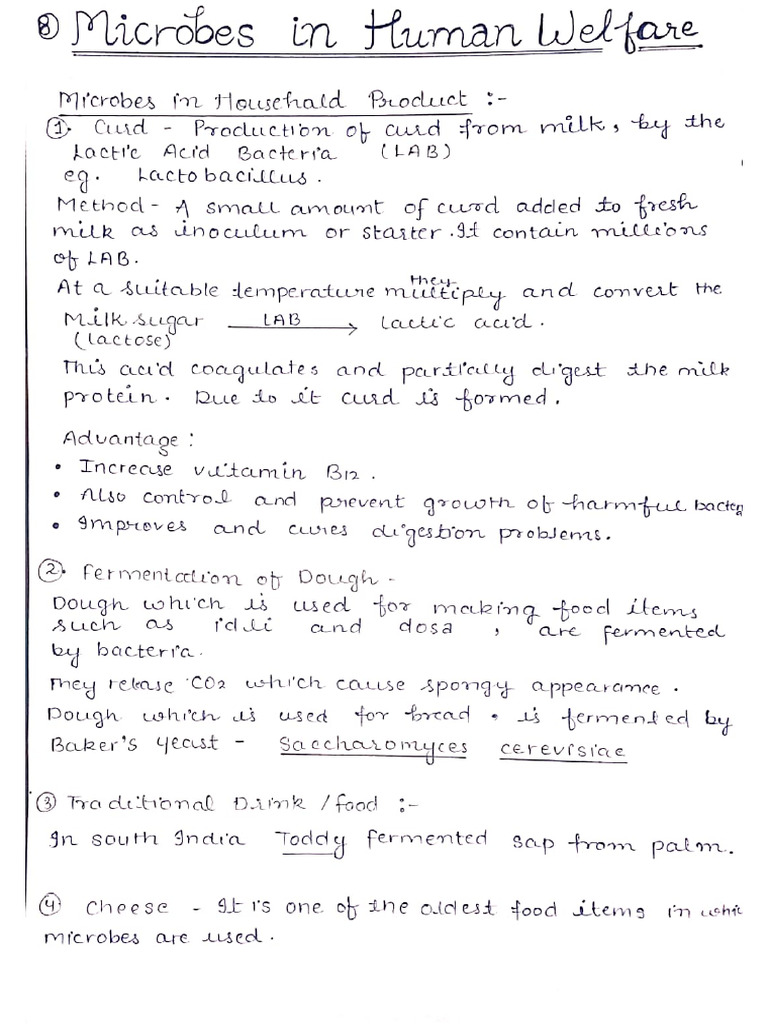 ⑧ Microbes in Human Welfare
Microbes in Household Product :-
① Curd - Production of curd from milk, by the
Lactic Acid Bacteria (LAB)
eg. Lactobacillus.
Method - A small amount of curd added to fresh
milk as inoculum or starter. It contain millions
of LAB.
At a suitable temperature they multiply and convert the
Milk sugar —LAB→ lactic acid.
(lactose)
This acid coagulates and partially digest the milk
protein. Due to it curd is formed.
Advantage :
• Increase vitamin B12.
• Also control and prevent growth of harmful bacter
• Improves and cures digestion problems.
②. Fermentation of Dough -
Dough which is used for making food items
such as idli and dosa, are fermented
by bacteria.
They release CO2 which cause spongy appearance.
Dough which is used for bread . is fermented by
Baker's yeast - Saccharomyces cerevisiae
③ Traditional Drink / food :-
In south India Toddy fermented sap from palm.
④ Cheese - It is one of the oldest food items in whic
microbes are used.